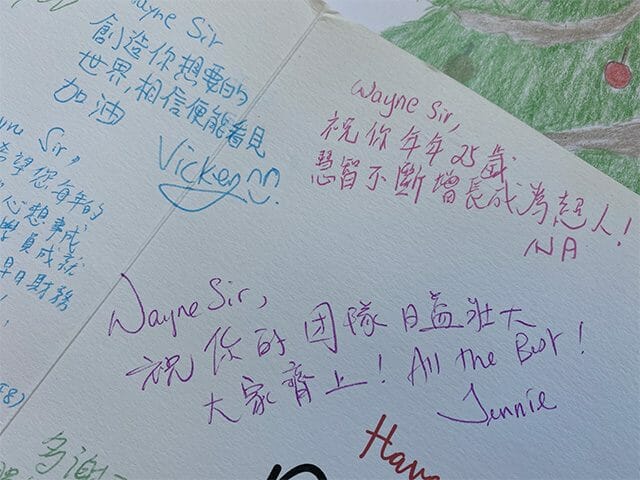 Wayne Sir
創造你想要的
世界,相信便能看見
加油
Vicken
Wayne Sir,
祝你年年25歲
慧智不斷增長成為超人!
NA
Sir,
希望您每年的
心想事成
學員成就
早日財務
Wayne Sir,
祝你的团隊日益壯大
大家齊上! All the Best!
Jennie
多謝
Have